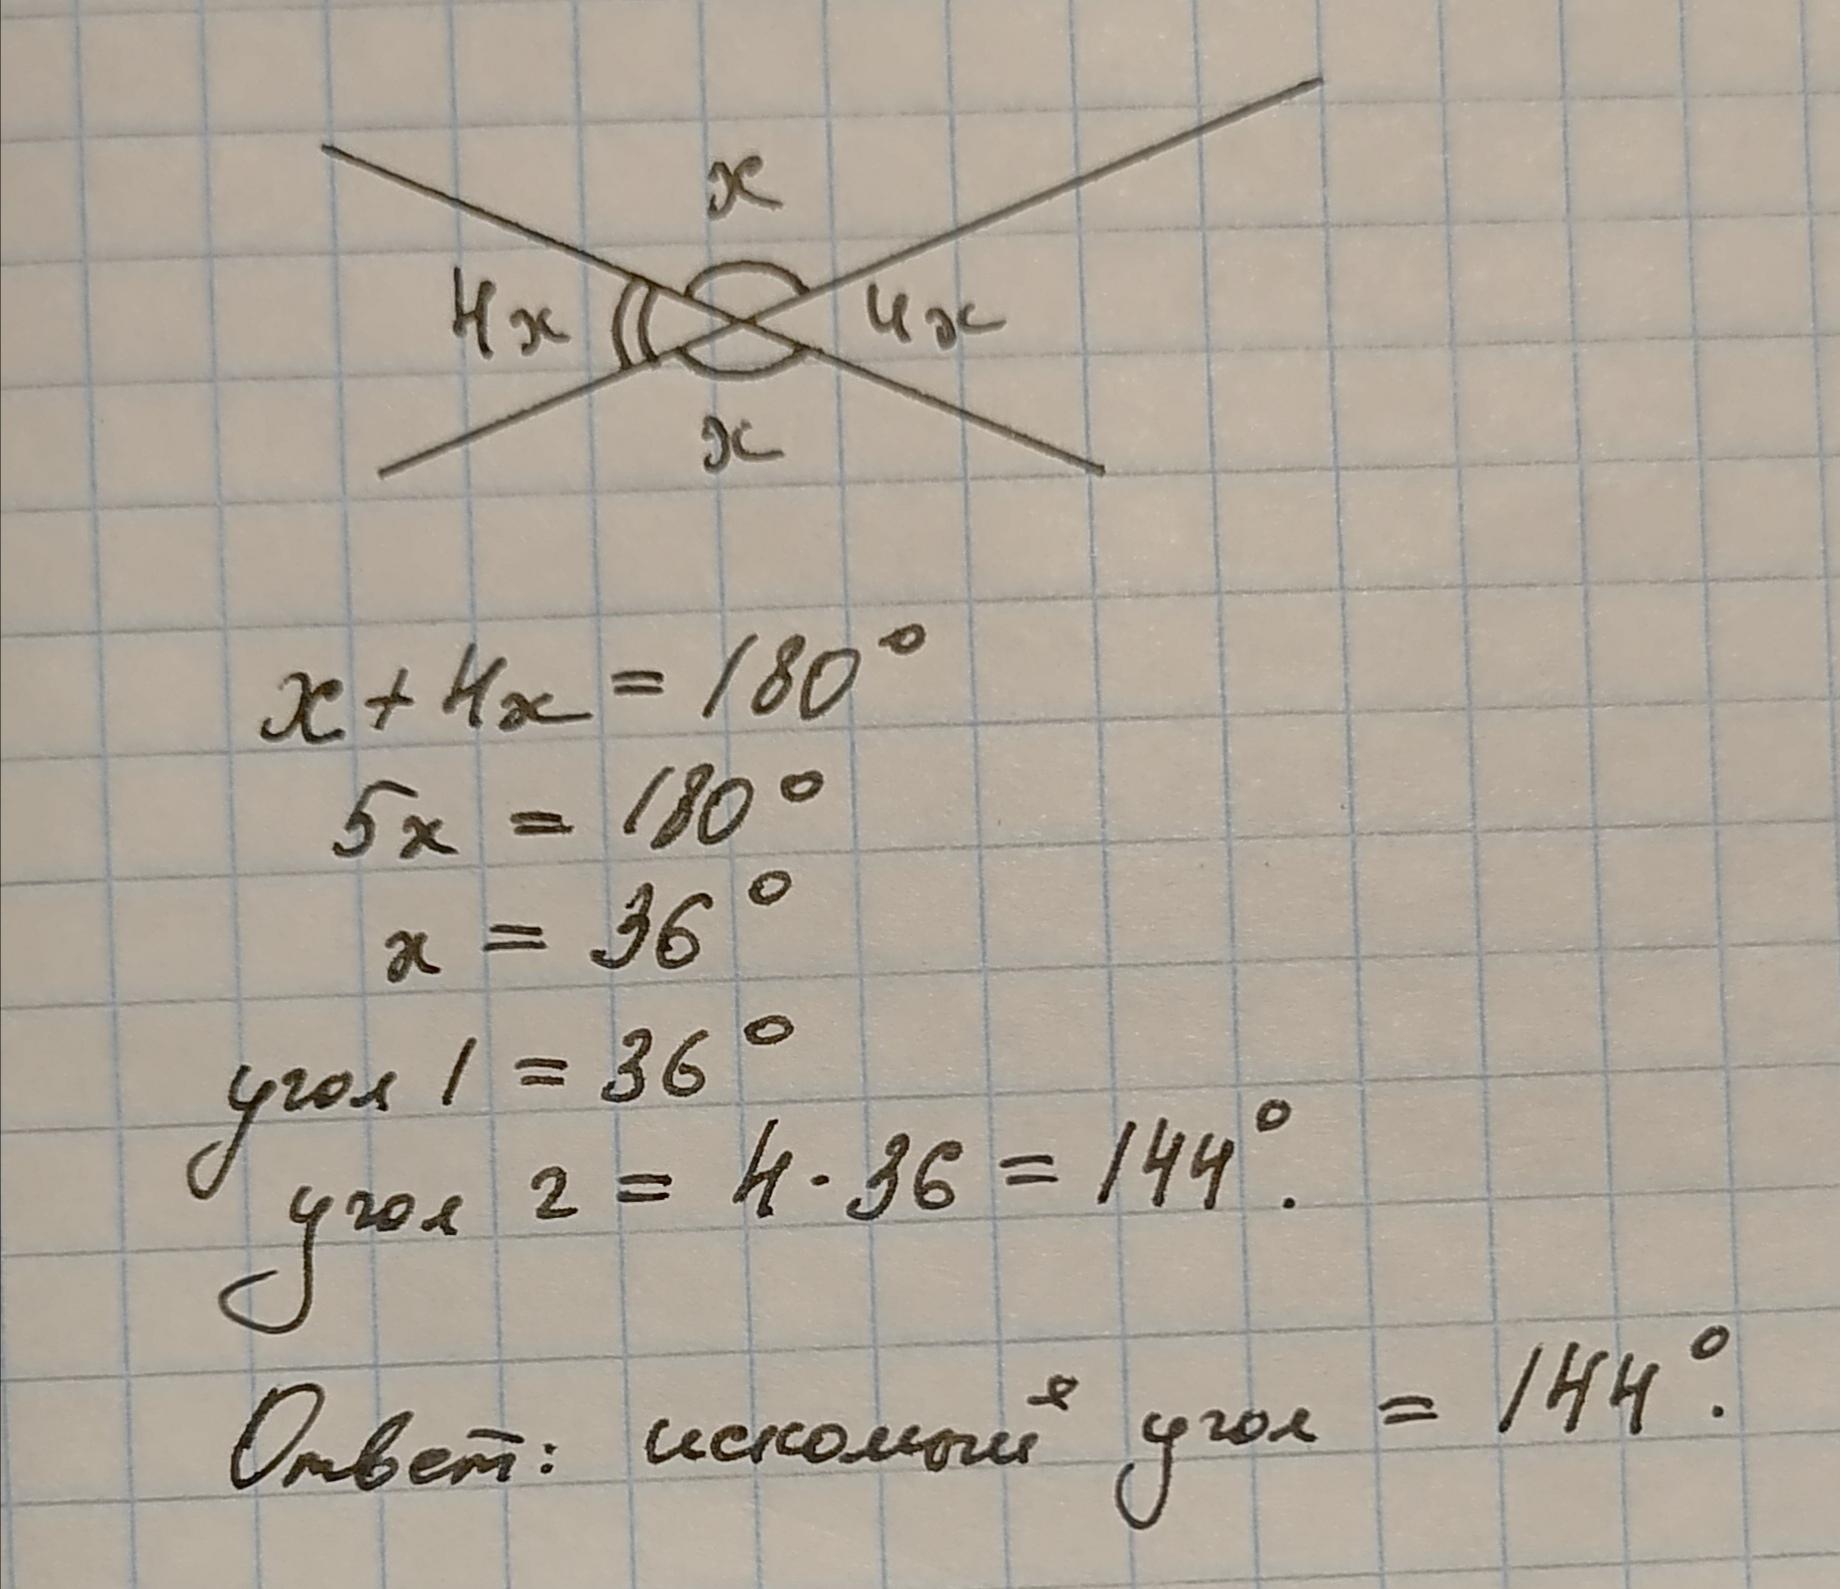 x
4x 4x
x
x + 4x = 180°
5x = 180°
x = 36°
угол 1 = 36°
угол 2 = 4 · 36 = 144°.
Ответ: искомый угол = 144°.